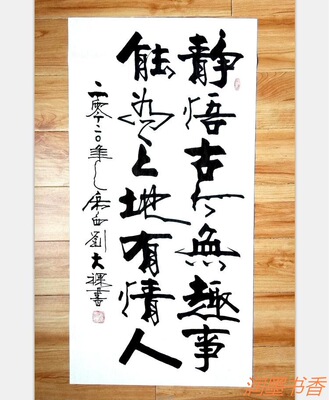 静悟古今無趣事
能為天地有情人
二零二〇年 劉大 書
墨书香